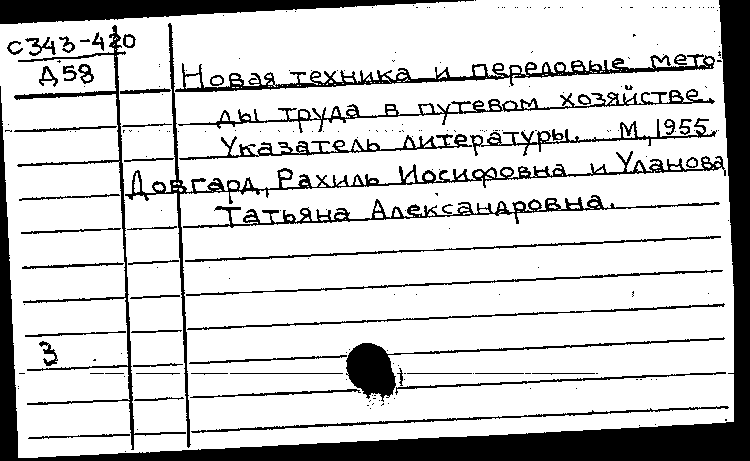 С343-420
Д58
Новая техника и передовые мето-
ды труда в путевом хозяйстве.
Указатель литературы. М., 1955.
Довгард, Рахиль Иосифовна и Уланова,
Татьяна Александровна.
3